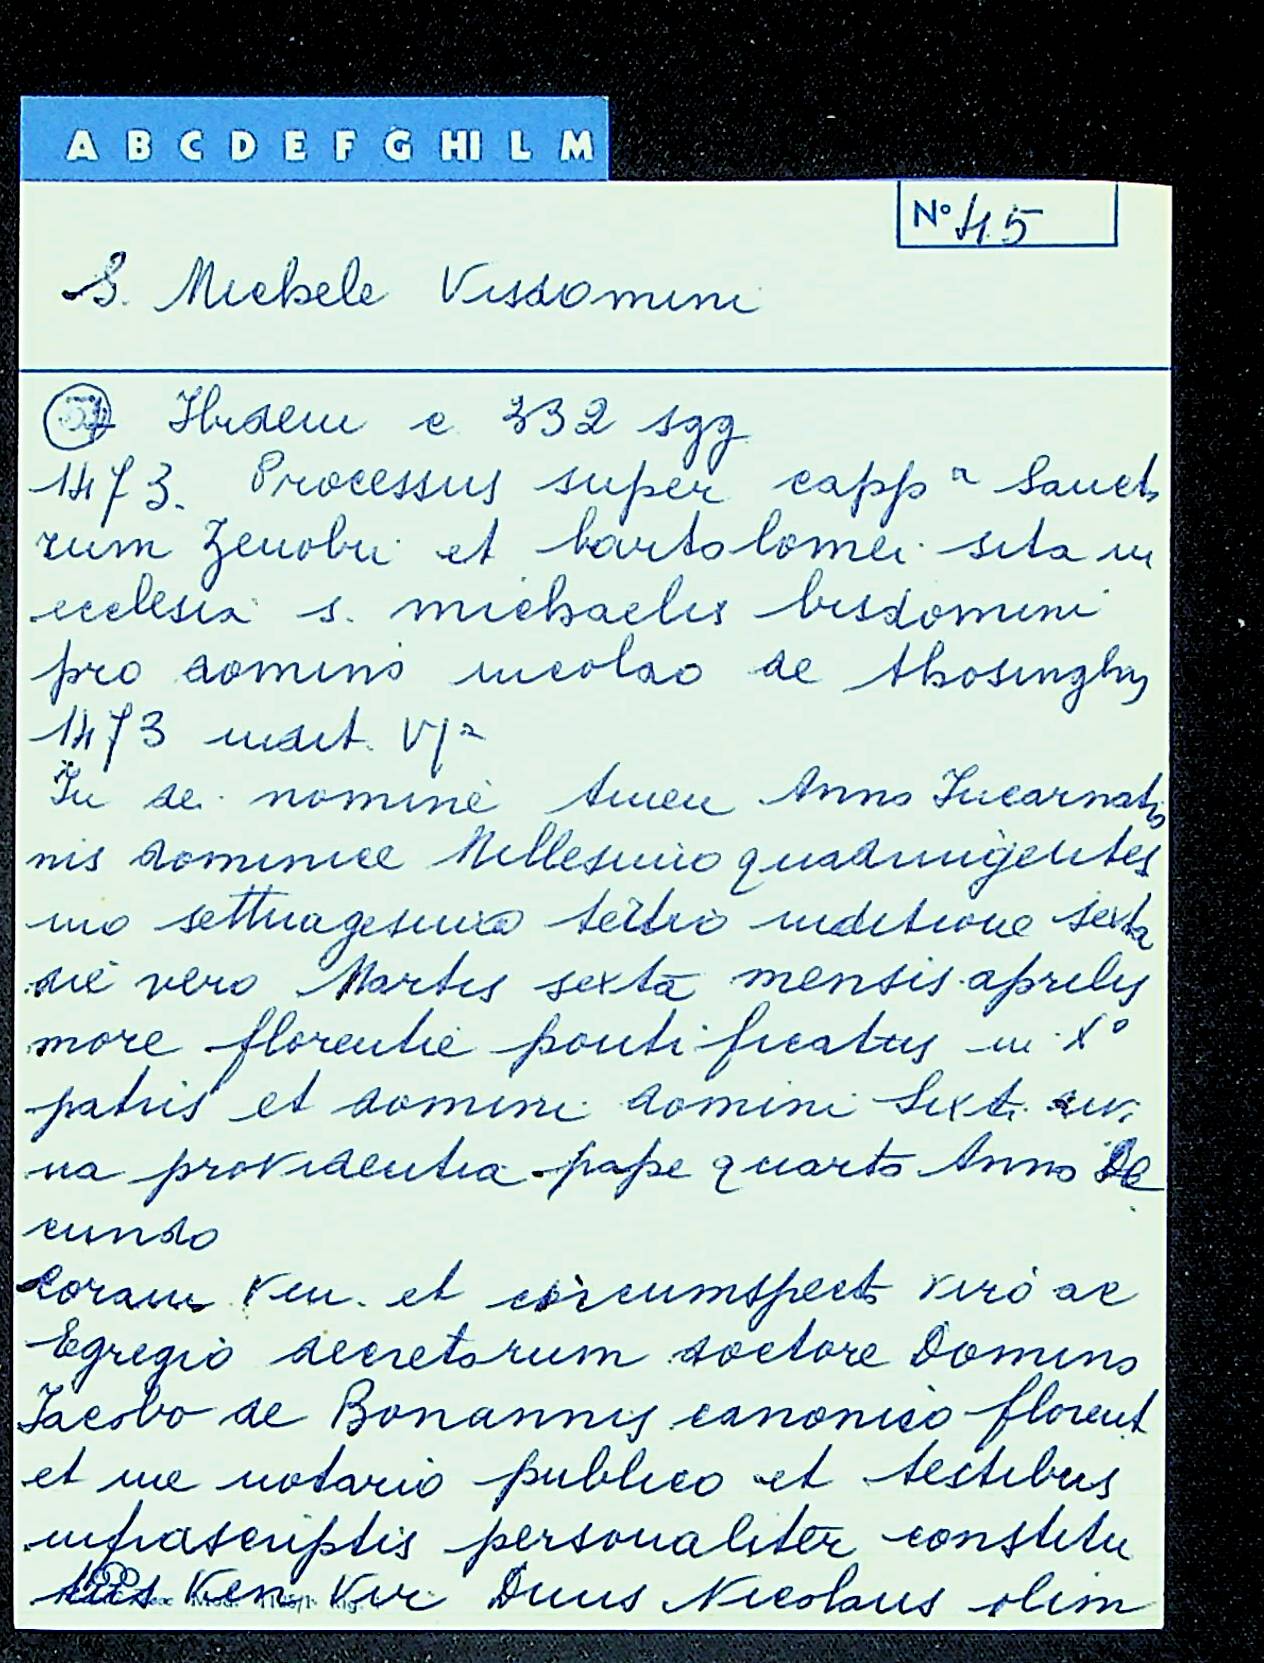 A B C D E F G HI L M
N° 45
S. Michele Visdomini
57 Ibidem c 332 sgg
1473. Processus super capp a Sancto
rum Zenobii et bartolomei sita in
ecclesia s. michaelis bisdomini
pro domino nicolao de thosinghis
1473 indit. VIa
In dei nomine Amen Anno Incarnatio
nis dominice Millesimo quadringentes
imo settuagesimo tertio inditione sexta
die vero Martis sexta mensis aprilis
more florentie pontificatus in Xo
patris et domini domini Sixti divi
na providentia pape quarto Anno Se
cundo
Coram Ven. et circumspecto viro ac
Egregio decretorum doctore Domino
Jacobo de Bonannis canonico florent
et me notario publico et testibus
infrascriptis personaliter constitu
tus Ven Vir Dnus Nicolaus olim